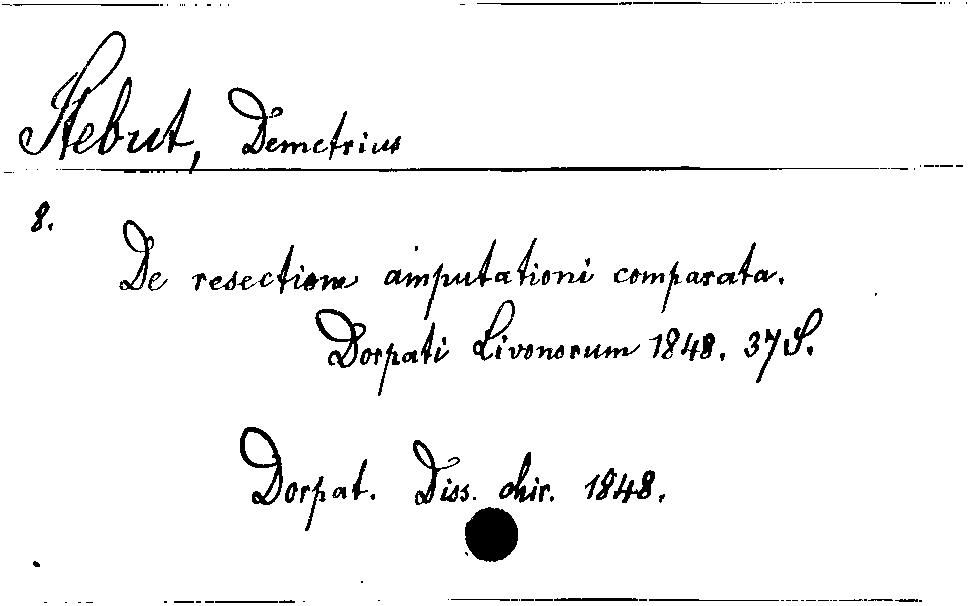 Stebut, Demetrius
8.
De resectione amputationi comparata.
Dorpati Livonorum 1848. 37 S.
Dorpat. Diss. chir. 1848.